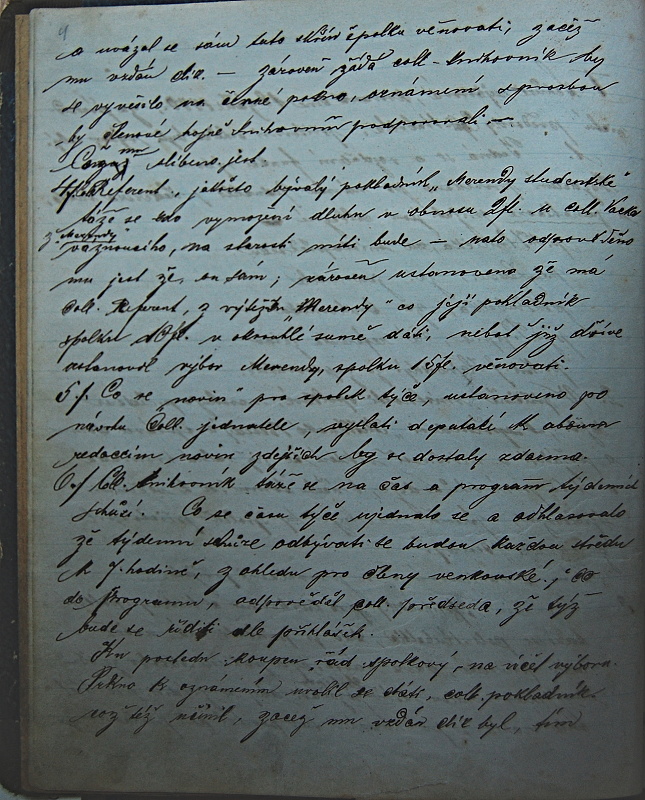 9
a uvázal se sám tuto skříň spolku věnovati, začež
mu vzdán dík. — zároveň žádá coll. knihovník by
se vyvěsilo na černé prkno, oznámení s prosbou
by členové hojně knihovnu podporovali —
Což mu slíbeno jest
4./ Referent, jakožto bývalý pokladník „Merendy studentské"
táže se kdo vymožení dluhu v obnosu 2 fl. u coll. Vaška
z „Merendy"
váznoucího, na starosti míti bude — nato odpověděno
mu jest že, on sám; zároveň ustanoveno že má
coll. Referent, z výtěžku „Merendy" co její pokladník
spolku 10 fl. v okrouhlé sumě dáti, neboť již dříve
ustanovil výbor Merendy, spolku 15 fl. věnovati.
5./ Co se „novin" pro spolek týče, ustanoveno po
návrhu coll. jednatele, vyslati deputaci k oboum
redakcím novin zdejších by se dostaly zdarma.
6./ Coll. knihovník táže se na čas a program týdenních
schůzí. Co se času týče ujednalo se a odhlasovalo
že týdenní schůze odbývati se budou každou středu
k 7. hodině, z ohledu pro členy venkovské; co
do programu, odpověděl coll. předseda, že týž
bude se říditi dle přihlášek.
Ku posledu koupen „řád spolkový", na účet výboru.
Prkno k oznámením uvolil se dáti, coll. pokladník
což též učinil, začež mu vzdán dík byl, tím